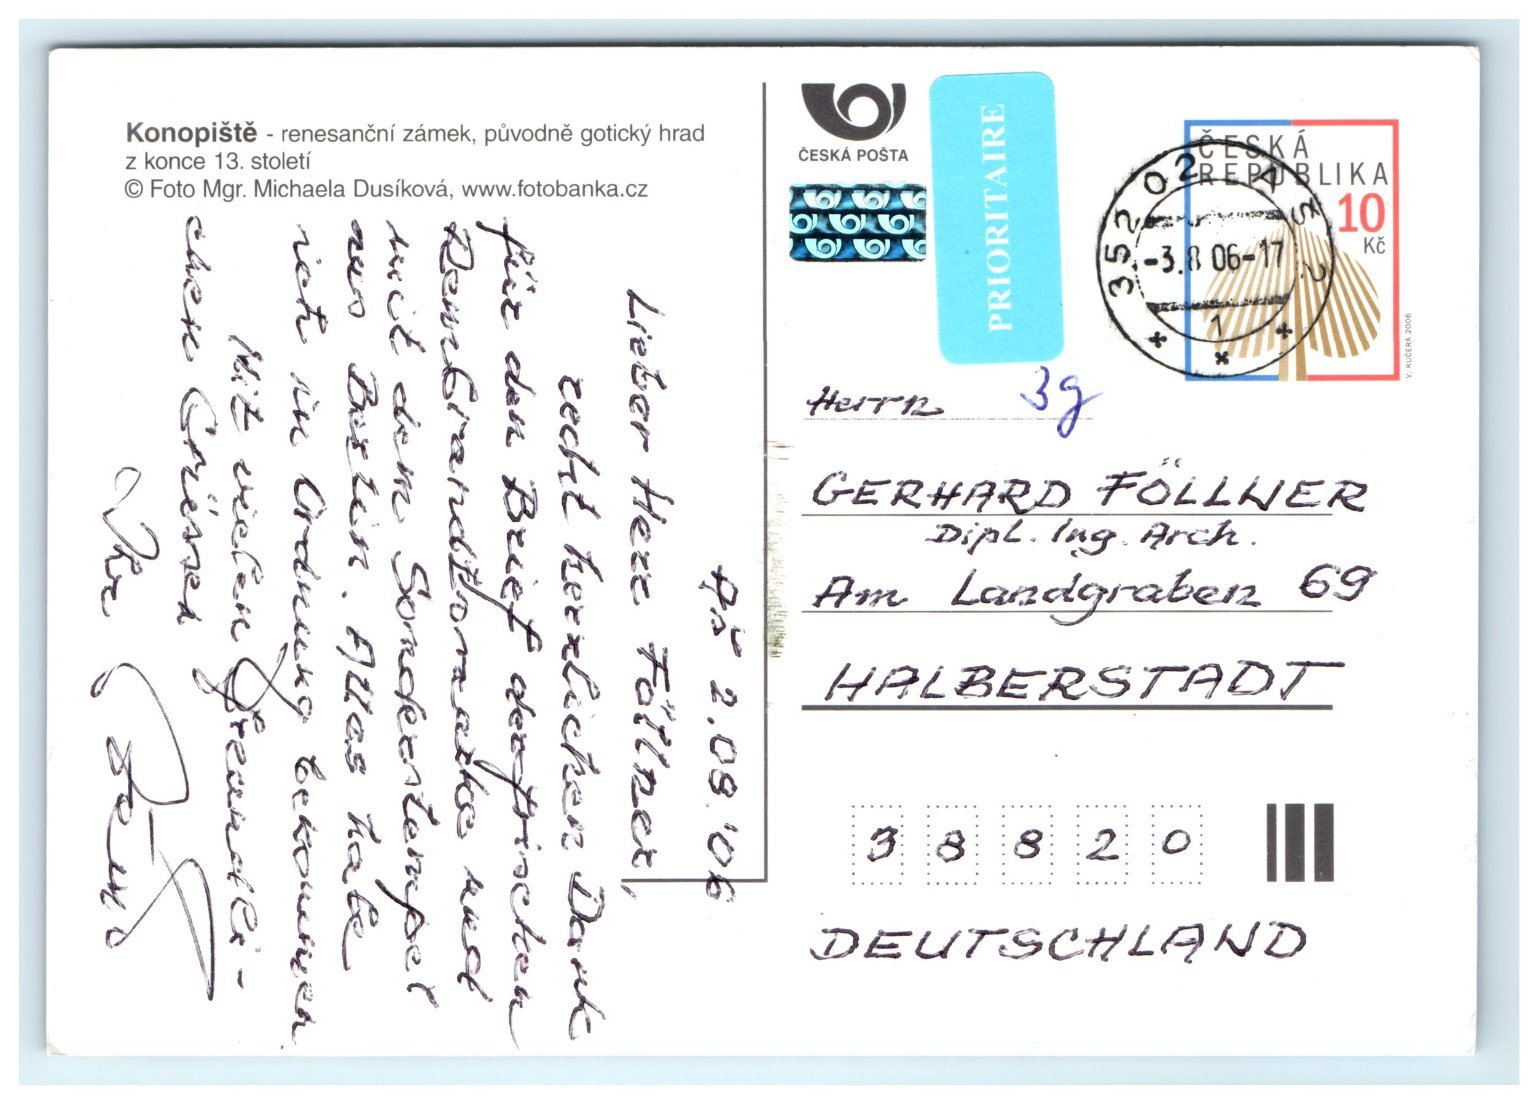 Konopiště - renesanční zámek, původně gotický hrad
z konce 13. století
© Foto Mgr. Michaela Dusíková, www.fotobanka.cz
Aš 2.08.'06
Lieber Herr Föllner,
recht herzlichen Dank
für den Brief der frischen
Rembrandtbomarke und
mit dem Sonderstempel
aus Berlin. Alles habe
ich in Ordnung bekommen
Mit vielen freundli-
chen Grüssen
Ihr
ČESKÁ POŠTA
PRIORITAIRE
ČESKÁ
REPUBLIKA
10
Kč
V. KUČERA 2006
352 02 AŠ 2
-3.8.06-17
1
Herrn 3g
GERHARD FÖLLNER
Dipl. Ing. Arch.
Am Landgraben 69
HALBERSTADT
38820
DEUTSCHLAND